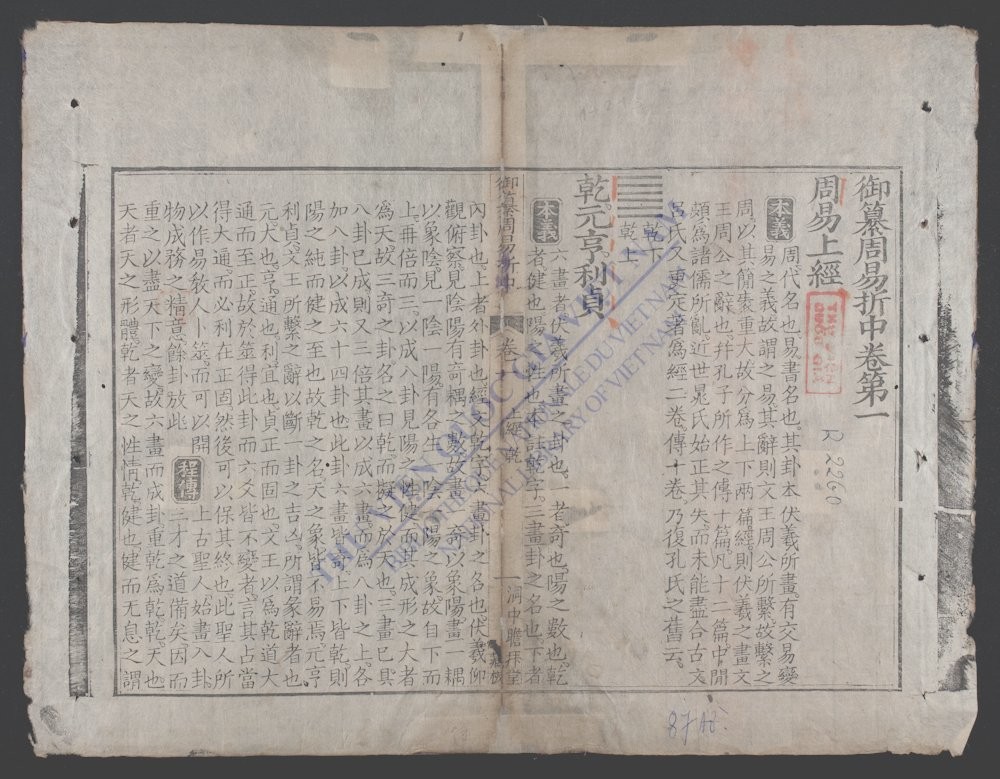 御纂周易折中卷第一
周易上經
本義
周代名也易書名也其卦本伏羲所畫有交易變
易之義故謂之易其辭則文王周公所繫故繫之
周以其簡袠重大故分為上下兩篇經則伏羲之畫文
王周公之辭也幷孔子所作之傳十篇凡十二篇中閒
頗為諸儒所亂近世晁氏始正其失而未能盡合古文
呂氏又更定著為經二卷傳十卷乃復孔氏之舊云
乾下
乾上
乾元亨利貞
本義
六畫者伏羲所畫之卦也一者奇也陽之數也乾
者健也陽之性也本註乾字三畫卦之名也下者
御纂周易折中
卷一
內卦也上者外卦也經文乾字六畫卦之名也伏羲仰
觀俯察見陰陽有奇耦之數故畫一奇以象陽畫一耦
以象陰見一陰一陽有各生一陰一陽之象故自下而
上再倍而三以成八卦見陽之性健而其成形之大者
為天故三奇之卦名之曰乾而擬之於天也三畫已具
八卦已成則又三倍其畫以成六畫而為八卦之上各
加八卦以成六十四卦也此卦六畫皆奇上下皆乾則
陽之純而健之至也故乾之名天之象皆不易焉元亨
利貞文王所繫之辭以斷一卦之吉凶所謂彖辭者也
元大也亨通也利宜也貞正而固也文王以為乾道大
通而至正故於筮得此卦而六爻皆不變者言其占當
得大通而必利在正固然後可以保其終也此聖人所
以作易教人卜筮而可以開
物成務之精意餘卦放此
程傳
上古聖人始畫八卦
三才之道備矣因而
重之以盡天下之變故六畫而成卦重乾為乾乾天也
天者天之形體乾者天之性情乾健也健而無息之謂
R 2260
8748
THƯ VIỆN QUỐC GIA VIỆT NAM
BIBLIOTHÈQUE NATIONALE DU VIETNAM
NATIONAL LIBRARY OF VIETNAM